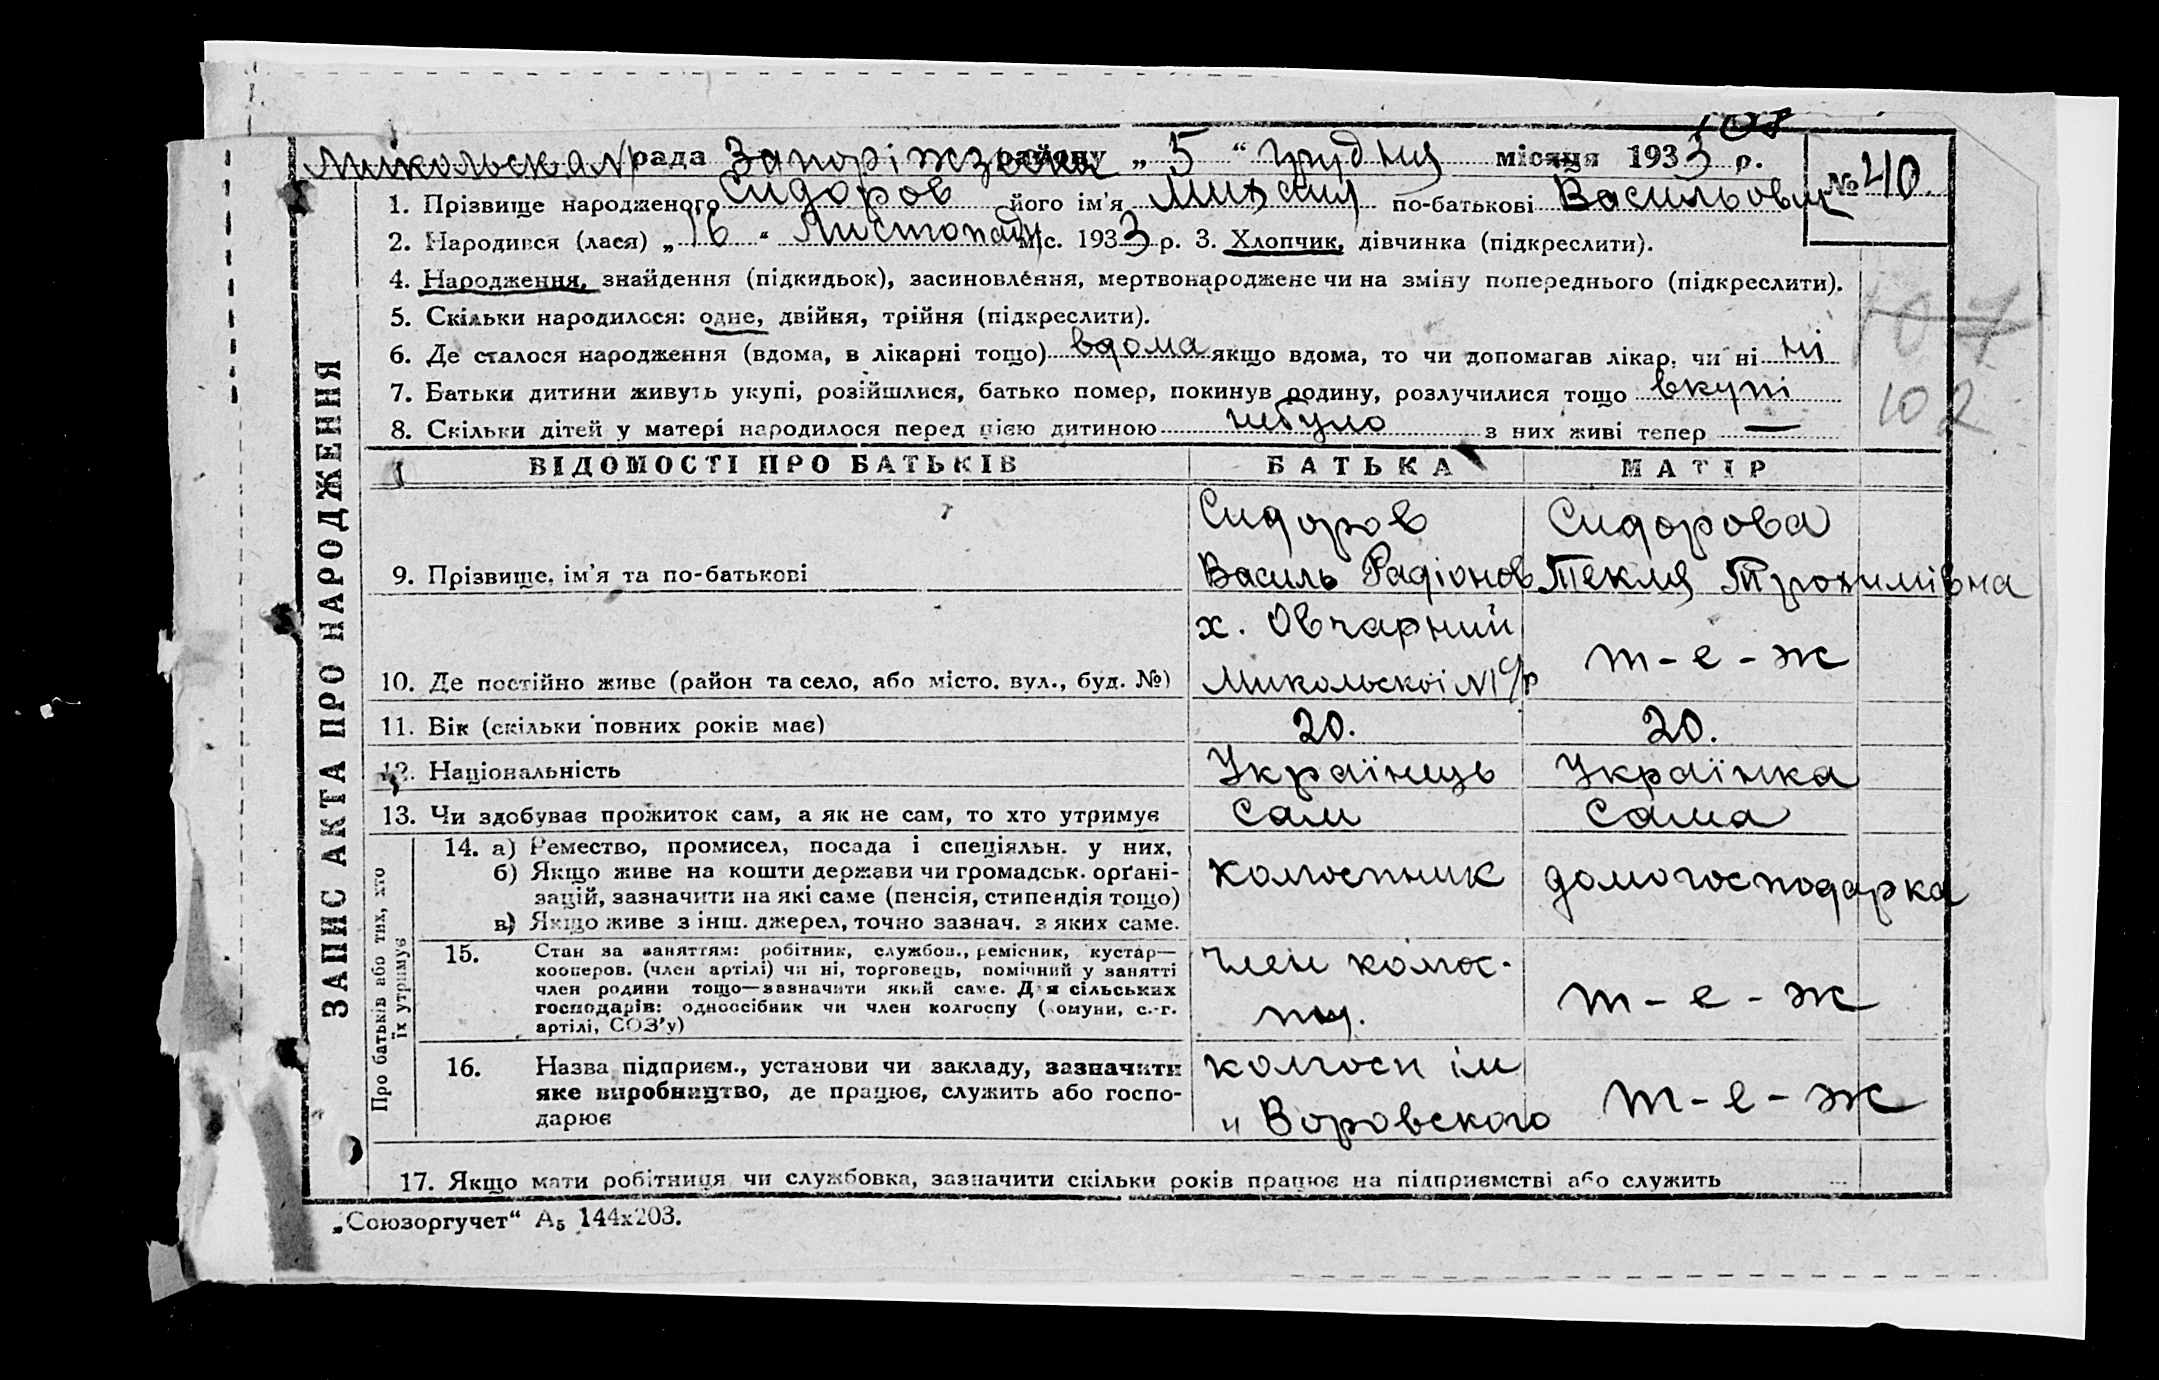 108
Микольська N1 рада Запоріжзького району „ 5 “ грудня місяця 1933 р.
№ 40
1. Прізвище народженого Сидоров його ім'я Михаил по-батькові Васильович
2. Народився (лася) „ 16 “ Листопаду міс. 1933 р. 3. Хлопчик, дівчинка (підкреслити).
4. Народження, знайдення (підкидьок), засиновлення, мертвонароджене чи на зміну попереднього (підкреслити).
5. Скільки народилося: одне, двійня, трійня (підкреслити).
107
6. Де сталося народження (вдома, в лікарні тощо) вдома якщо вдома, то чи допомагав лікар, чи ні ні
7. Батьки дитини живуть укупі, розійшлися, батько помер, покинув родину, розлучилися тощо вкупі
102
8. Скільки дітей у матері народилося перед цією дитиною небуло з них живі тепер —
ЗАПИС АКТА ПРО НАРОДЖЕННЯ
ВІДОМОСТІ ПРО БАТЬКІВ БАТЬКА МАТІР
Сидоров Сидорова
9. Прізвище, ім'я та по-батькові Василь Радіонов Текля Трохимівна
х. Овчарний
10. Де постійно живе (район та село, або місто, вул., буд. №) Микольскої N1 с/р т-е-ж
11. Вік (скільки повних років має) 20. 20.
12. Національність Українець Українка
13. Чи здобуває прожиток сам, а як не сам, то хто утримує Сам Сама
Про батьків або тих, хто
їх утримує
14. а) Ремество, промисел, посада і спеціяльн. у них.
б) Якщо живе на кошти держави чи громадськ. орґані-
зацій, зазначити на які саме (пенсія, стипендія тощо)
в) Якщо живе з інш. джерел, точно зазнач. з яких саме.
колоспник домогосподарка
15. Стан за заняттям: робітник, службов., ремісник, кустар—
кооперов. (член артілі) чи ні, торговець, помічний у занятті
член родини тощо—зазначити який саме. Для сільських
господарів: одноосібник чи член колгоспу (комуни, с.-г.
артілі, СОЗ'у)
член колос-
пу. т-е-ж
16. Назва підприєм., установи чи закладу, зазначити
яке виробництво, де працює, служить або госпо-
дарює
колгосп ім
„ Воровского т-е-ж
17. Якщо мати робітниця чи службовка, зазначити скільки років працює на підприємстві або служить
„Союзоргучет“ А₅ 144х203.